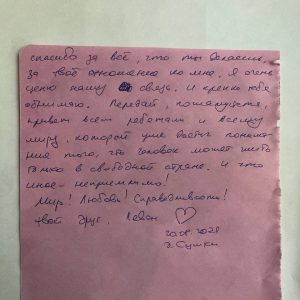 спасибо за всё, что ты делаешь,
за твоё отношение ко мне. Я очень
ценю нашу связь. И крепко тебя
обнимаю. Передай, пожалуйста,
привет всем ребятам и всему
миру, который уже достиг понима-
ния того, что человек может жить
только в свободной стране. И что
иное - неприемлемо!
Мир! Любовь! Справедливость!
Твой друг,